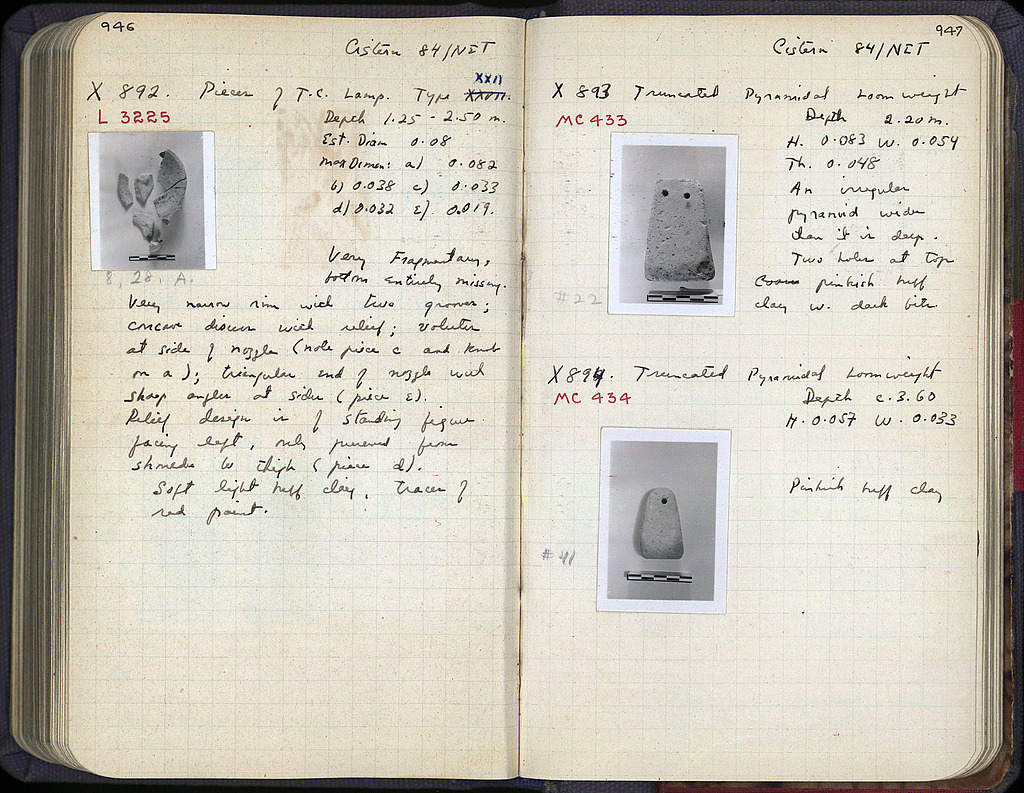 946
Cistern 84/NET
XXII
X 892. Pieces of T.C. Lamp. Type XXVII.
L 3225
Depth 1.25 - 2.50 m.
Est. Diam 0.08
Max Dimen: a) 0.082
b) 0.038 c) 0.033
d) 0.032 E) 0.019.
Very Fragmentary,
bottom entirely missing.
8, 28. A.
Very narrow rim with two grooves;
concave discus with relief; volutes
at side of nozzle (note piece c and knob
on a); triangular end of nozzle with
sharp angles at sides (piece E).
Relief design is of standing figure
facing left, only preserved from
shoulder to thigh (piece d).
Soft light buff clay, traces of
red paint.
947
Cistern 84/NET
X 893 Truncated Pyramidal Loomweight
MC 433
Depth 2.20 m.
H. 0.083 W. 0.054
Th. 0.048
An irregular
pyramid wider
than it is deep.
Two holes at top
Coarse pinkish buff
clay w. dark bits
#22
X 894. Truncated Pyramidal Loomweight
MC 434
Depth c. 3.60
H. 0.057 W. 0.033
Pinkish buff clay
#41